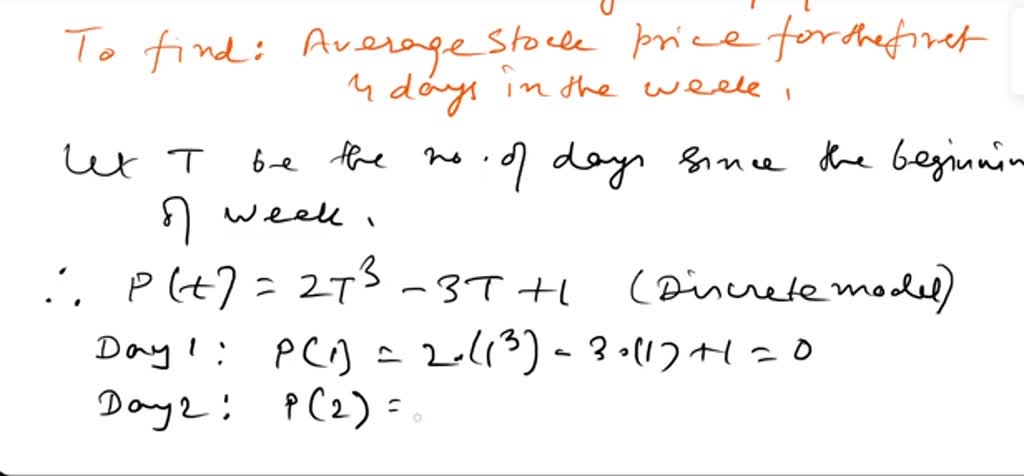 To find: Average stock price for the first
4 days in the week.
Let T be the no. of days since the beginnin
of week.
∴ P(t) = 2T³ - 3T + 1 (Discrete model)
Day 1: P(1) = 2.(1³) - 3.(1) + 1 = 0
Day 2: P(2) =